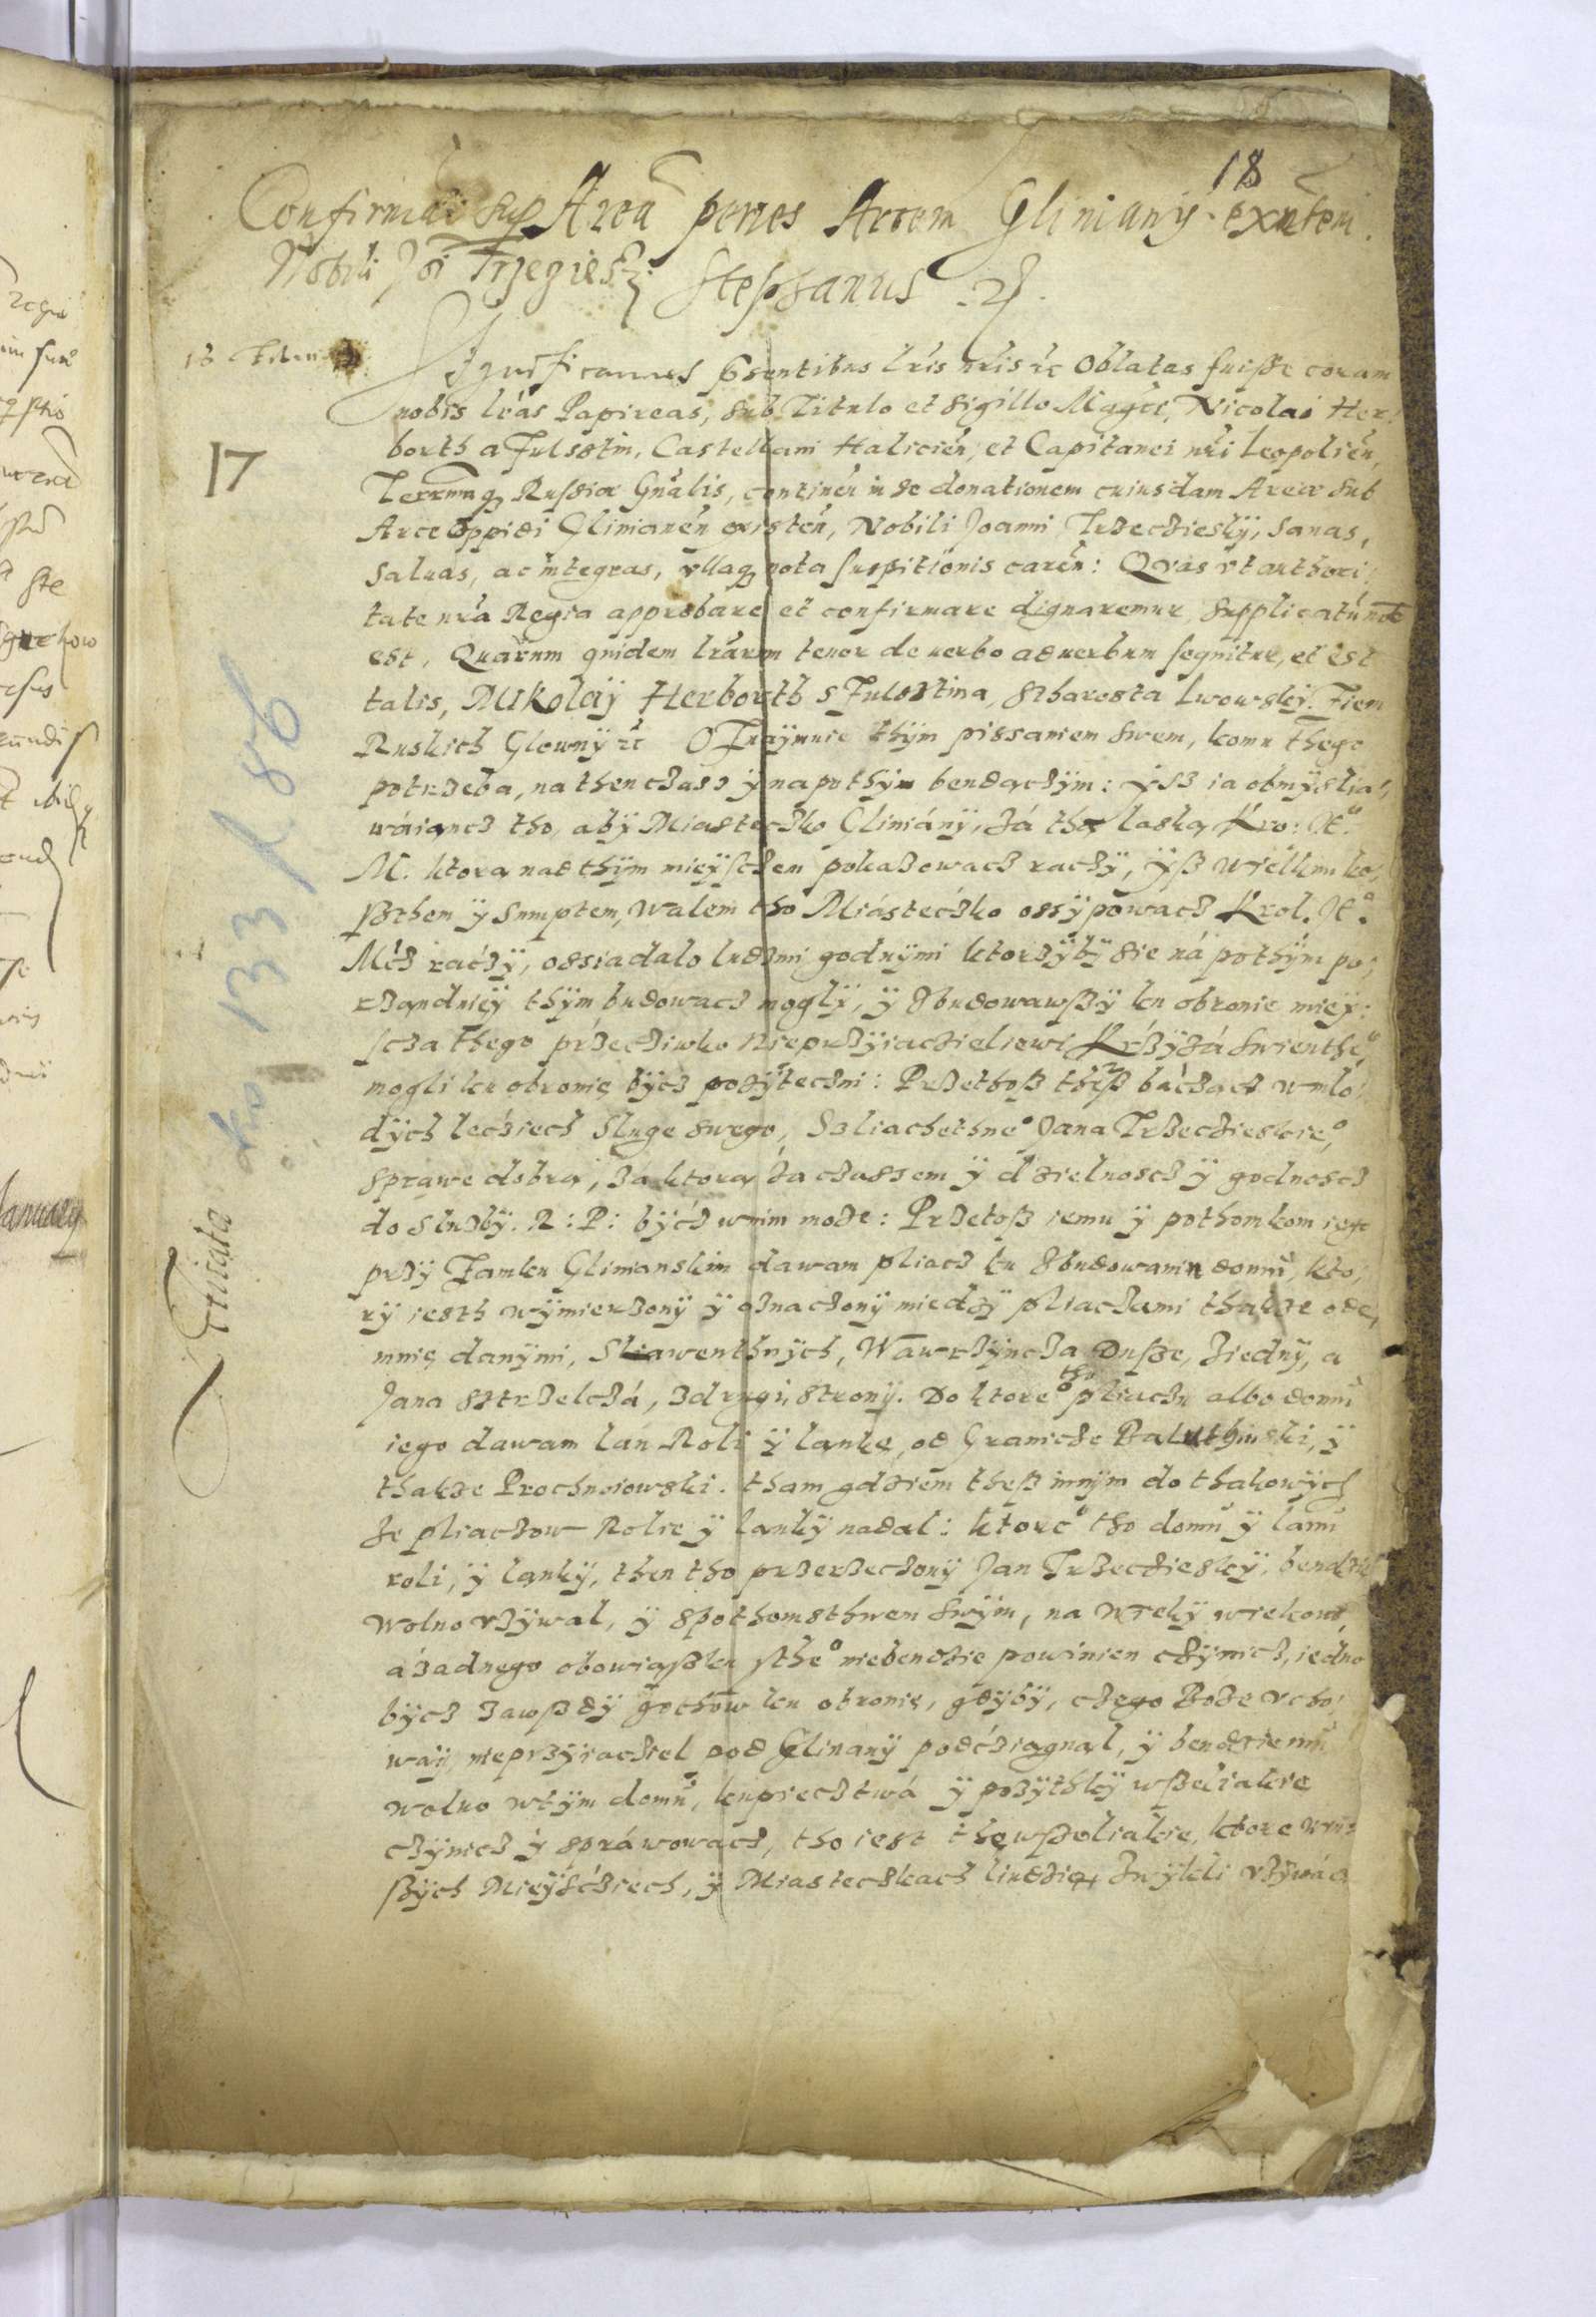 18
Confirmatio sup Area penes Arcem Gliniany existem.
Nobili Joi Trzecieski Stephanus
Significamus pñtentibus lris nris etc Oblatas fuisse coram
nobis lras Papireas, sub Titulo et sigillo Magci, Nicolai Her:
borth a Fulsstin, Castellani Halicien, et Capitanei nri Leopolien,
Terrarumq Russiae Gnalis, continen in se donationem cuiusdam Areae sub
Arce Oppidi Glinianen existen, Nobili Joanni Trzeczieskÿ, Sanas,
Saluas, ac integras, vllaq nota suspitionis caren: Qvas vt authori:
tate nra Regia approbare et confirmare dignaremur, supplicatu nobis
est, Quarum quidem lrarum tenor de uerbo ad uerbum sequitur, et est
talis, Mikolaÿ Herborth s Fulsztina, Stharosta Lwowskÿ, Ziem
Ruskich Glownÿ etc OZnaÿmuie thÿm pissaniem swem, komu thego
potrzeba, na then czass ÿ napothÿm bendączÿm: ÿsz ia obmÿslia:
waiancz tho, abÿ Miasteczko Glinianÿ, Zá thą laską Kro: Je°
M. ktorą nad thÿm mieÿsczem pokazowacz raczÿ, ÿß wielkim ko:
ßthem ÿ sumptem, walem tho Miásteczko ossÿpowacz Krol. Je°
Mcz raczÿ, ossiadalo ludzmi godnÿmi ktorzÿbÿ sie ná pothÿm po:
rzandnieÿ thÿm budowacz moglÿ, ÿ Zbudowawßÿ ku obronie mieÿ:
scza thego przecziwko Nieprzÿiaczieliowi Krzÿżá Swienthe°,
mogli ku obronię bÿcz pozÿteczni: Przethoß theß báczącz wmlo:
dÿch lecziech Sluge swego, Szliachethne° Jana Trzeczieskie°,
sprawe dobrą, zá ktorą zá czassem ÿ dzielnoscz ÿ godnoscz
do sluzbÿ. R: P: bÿcz wnim moze: Przetoß iemu ÿ pothomkom iego
przÿ Zamku Glinianskim dawam pliacz ku Zbudowaniu domu, kto:
rÿ iesth wÿmierzonÿ ÿ oznaczonÿ miedzÿ pliaczami thakze ode,
mnię danÿmi, Sliawenthnÿch, Wawrzÿncza Dusze, Ziednÿ, a
Jana Sztrzelczá, zdrugiÿ stronÿ. Do ktore° tho pliaczu albo domu
iego dawam lan Roli ÿ lankę, od Granicze Baluthinski, ÿ
thakze Prochniowski. tham gdziem theß innÿm do thakowÿch
ze pliaczow Rolie ÿ lankÿ nadal: ktore° tho domu ÿ lanu
roli, ÿ lankÿ, then tho przerzeczonÿ Jan Trzeczieskÿ, bendzie
wolno vzÿwal, ÿ spothomsthwem swÿm, na wiekÿ wiekow,
á zadnego obowiąßku sthe° niebendzie powinien czÿnicz, iedno
bÿcz zawßdÿ gothow ku obronię, gdÿbÿ, czego Boze vcho:
waÿ, nieprzÿiacziel pod Glinanÿ podcziągnal, ÿ bendzie mu
wolno wtÿm domu, kupiecztwá ÿ pozÿthkÿ wßeliakie
czÿnicz ÿ spráwowacz, tho iest the wßeliakie, ktore w in:
ßÿch Mieÿsczsiech, ÿ Miasteczkach liudzie Zwÿkli vzÿwacz
17
Gliniata
ko 133 / 86